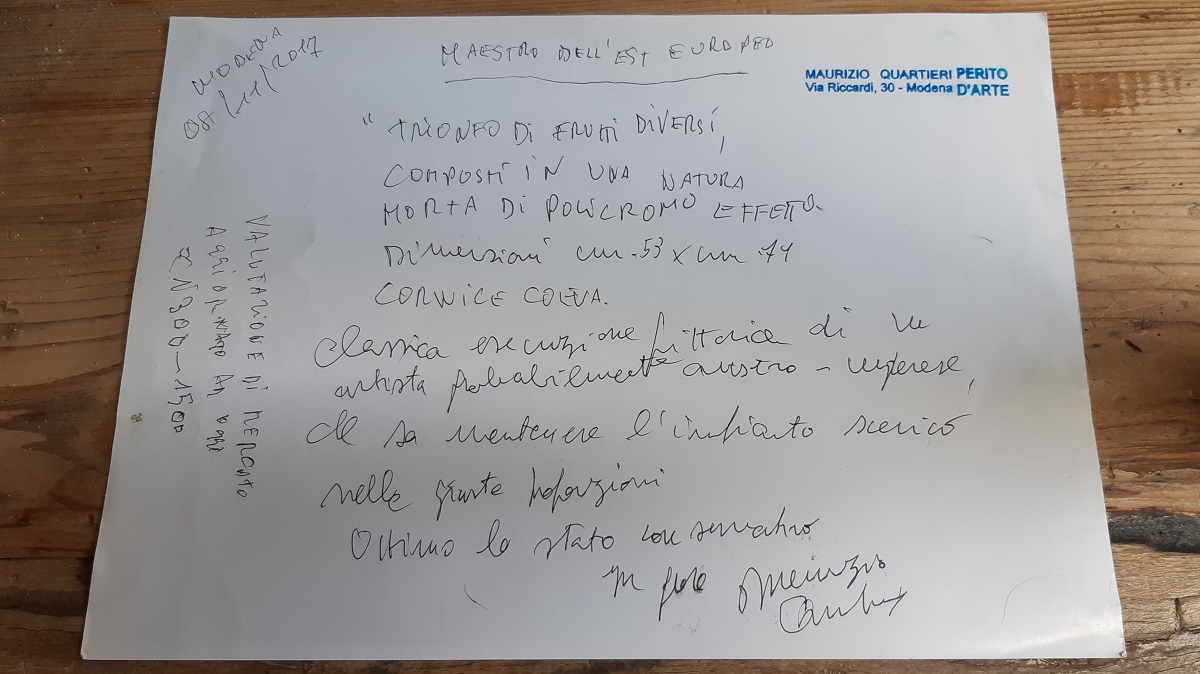 MODENA
07/11/2017
MAESTRO DELL'EST EUROPEO
MAURIZIO QUARTIERI PERITO
Via Riccardi, 30 - Modena D'ARTE
" TRIONFO DI FRUTTI DIVERSI,
COMPOSTI IN UNA NATURA
MORTA DI POLICROMO EFFETTO.
Dimensioni cm. 53 x cm. 74
CORNICE COEVA.
Classica esecuzione pittorica di un
artista probabilmente austro-ungherese,
che sa mantenere l'impianto scenico
nelle giuste proporzioni
Ottimo lo stato conservativo
In fede Maurizio
VALUTAZIONE DI MERCATO
AGGIORNATO AD OGGI
1500